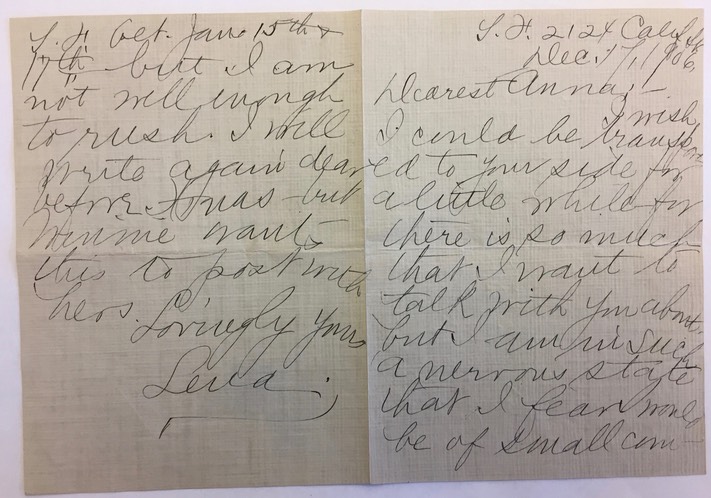 S. F. 2124 Cal. St.
Dec. 17, 1906,
Dearest Anna; —
I wish
I could be transport
ed to your side for
a little while for
there is so much
that I want to
talk with you about,
but I am in such
a nervous state
that I fear would
be of small com-
S. F. bet. Jan. 15th &
17th but I am
not well enough
to rush. I will
write again dear
before Xmas - but
Minnie wants
this to post with
hers. Lovingly Yours
Lena.